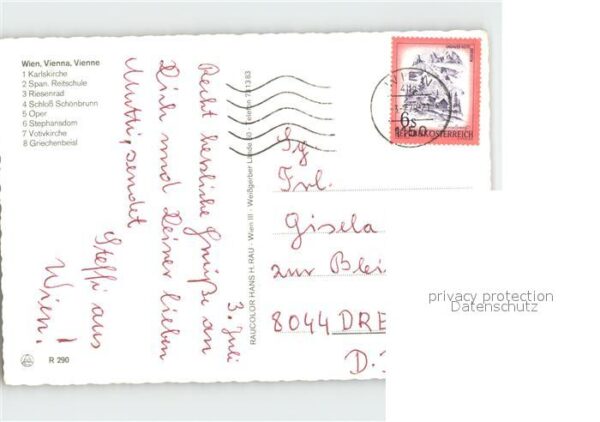 Wien, Vienna, Vienne
1 Karlskirche
2 Span. Reitschule
3 Riesenrad
4 Schloß Schönbrunn
5 Oper
6 Stephansdom
7 Votivkirche
8 Griechenbeisl
3. Juli
Recht herzliche Grüße an
Dich und Deiner lieben
Mutti, sendet
Steffi aus
Wien!
R 290
RAUCOLOR HANS H. RAU - Wien III - Weißgerber Lände 50 - Telefon 73 13 83
WIEN
6s
REPUBLIK ÖSTERREICH
Sg.
Frl.
Gisela
zur Blei
8044 DRE
D.
privacy protection
Datenschutz